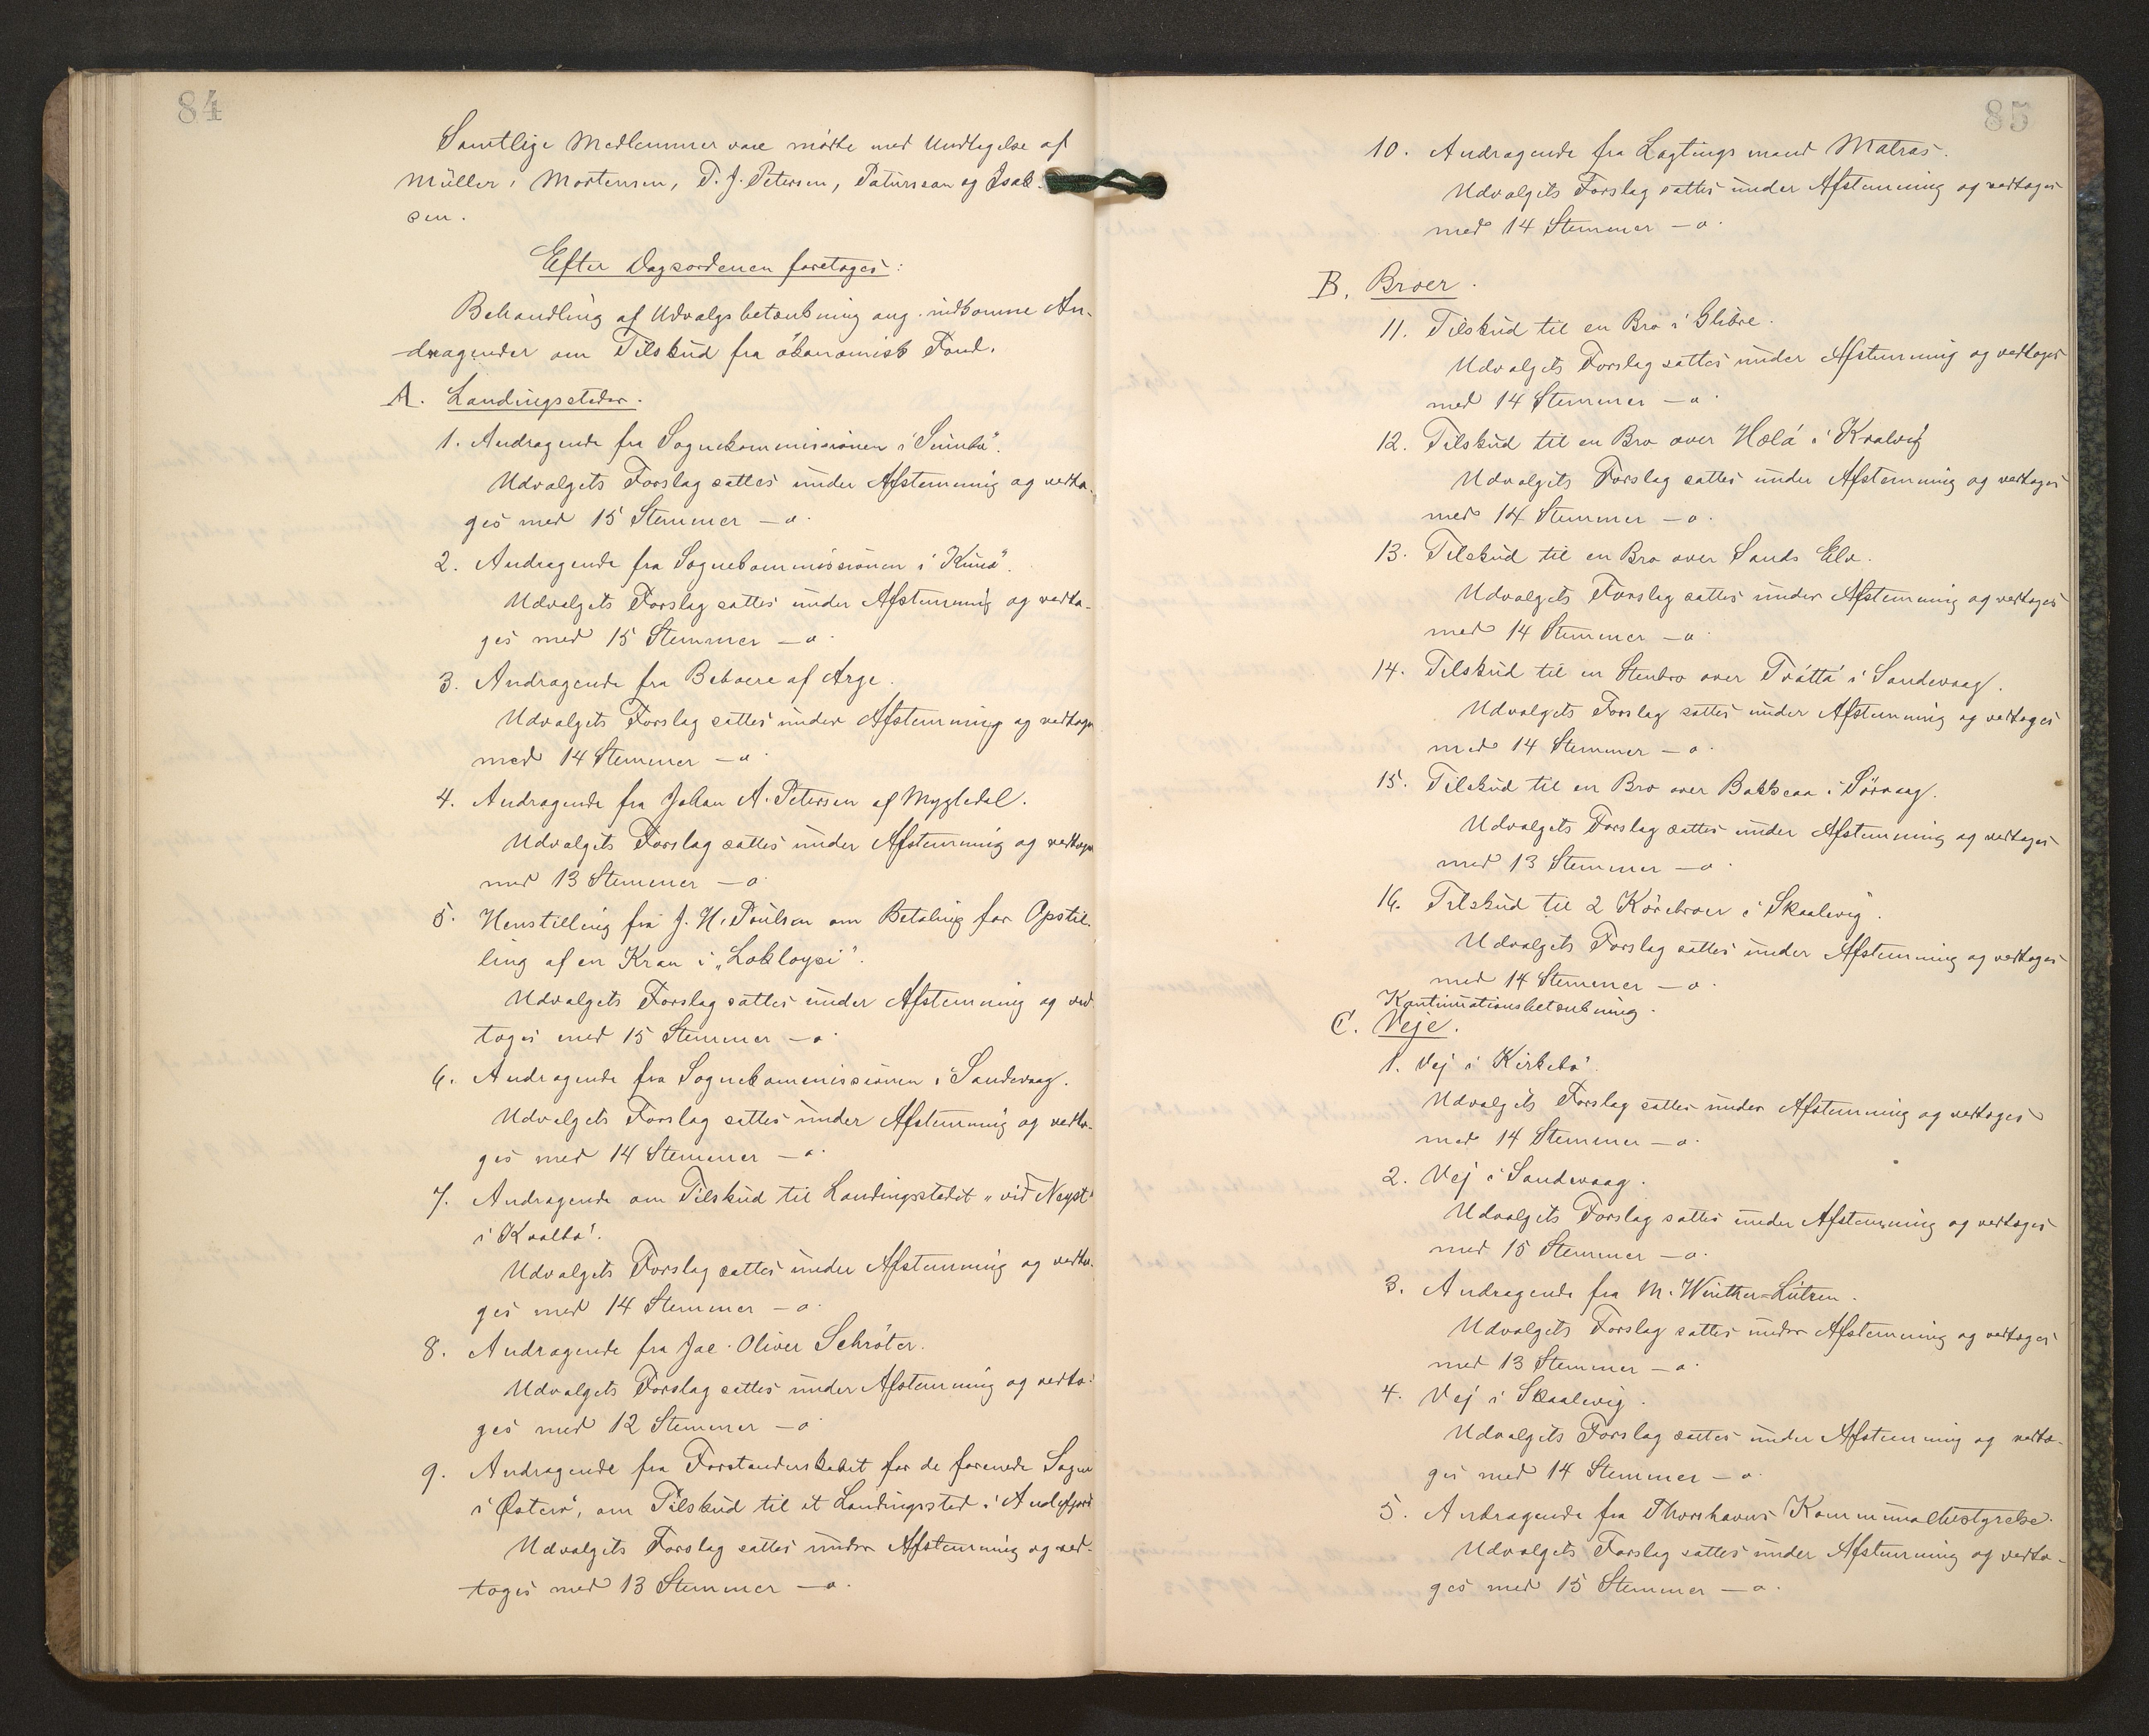 84
Samtlige Medlemmer vare mödte med Undtagelse af
Müller, Mortensen, P. J. Petersen, Patursson og Isak-
sen.
Efter Dagsordenen foretoges:
Behandling af Udvalgsbetænkning ang. indkomne An-
dragender om Tilskud fra ökonomisk Fond.
A. Landingssteder.
1. Andragende fra Sognekommissionen i "Sumbö".
Udvalgets Forslag sattes under Afstemning og vedto-
ges med 15 Stemmer – o.
2. Andragende fra Sognekommissionen i "Kunö".
Udvalgets Forslag sattes under Afstemning og vedto-
ges med 15 Stemmer – o.
3. Andragende fra Beboere af Arge.
Udvalgets Forslag sattes under Afstemning og vedtoges
med 14 Stemmer – o.
4. Andragende fra Johan A. Petersen af Mygledal.
Udvalgets Forslag sattes under Afstemning og vedtoges
med 13 Stemmer – o.
5. Henstilling fra J. H. Poulsen om Betaling for Opstil-
ling af en Kran i „Lokloysi".
Udvalgets Forslag sattes under Afstemning og ved-
toges med 15 Stemmer – o.
6. Andragende fra Sognekommissionen i Sandevaag.
Udvalgets Forslag sattes under Afstemning og vedto-
ges med 14 Stemmer – o.
7. Andragende om Tilskud til Landingsstedet „við Neyst"
i Kvalbö.
Udvalgets Forslag sattes under Afstemning og vedto-
ges med 14 Stemmer – o.
8. Andragende fra Jac. Oliver Schröter.
Udvalgets Forslag sattes under Afstemning og vedto-
ges med 12 Stemmer – o
9. Andragende fra Forstanderskabet for de forenede Sogne
i Österö, om Tilskud til et Landingssted i Andefjord
Udvalgets Forslag sattes under Afstemning og ved-
toges med 13 Stemmer – o.
85
10. Andragende fra Lagtingsmand Matras.
Udvalgets Forslag sattes under Afstemning og vedtoges
med 14 Stemmer – o.
B. Broer.
11. Tilskud til en Bro i Glibre.
Udvalgets Forslag sattes under Afstemning og vedtoges
med 14 Stemmer – o.
12. Tilskud til en Bro over Hælá i Kvalvig
Udvalgets Forslag sattes under Afstemning og vedtoges
med 14 Stemmer – o.
13. Tilskud til en Bro over Sands Elv.
Udvalgets Forslag sattes under Afstemning og vedtoges
med 14 Stemmer – o.
14. Tilskud til en Stenbro over Tváttá i Sandevaag.
Udvalgets Forslag sattes under Afstemning og vedtoges
med 14 Stemmer – o.
15. Tilskud til en Bro over Bakkeaa i Sörvaag.
Udvalgets Forslag sattes under Afstemning og vedtoges
med 13 Stemmer – o.
16. Tilskud til 2 Körebroer i Skaalevig.
Udvalgets Forslag sattes under Afstemning og vedtoges
med 14 Stemmer – o.
Kontinuationsbetænkning.
C. Veje.
1. Vej i Kirkebö.
Udvalgets Forslag sattes under Afstemning og vedtoges
med 14 Stemmer – o.
2. Vej i Sandevaag.
Udvalgets Forslag sattes under Afstemning og vedtoges
med 15 Stemmer – o.
3. Andragende fra M. Winther-Lützen.
Udvalgets Forslag sattes under Afstemning og vedtoges
med 13 Stemmer – o.
4. Vej i Skaalevig.
Udvalgets Forslag sattes under Afstemning og vedto-
ges med 14 Stemmer – o.
5. Andragende fra Thorshavns Kommunalbestyrelse.
Udvalgets Forslag sattes under Afstemning og vedto-
ges med 15 Stemmer – o.